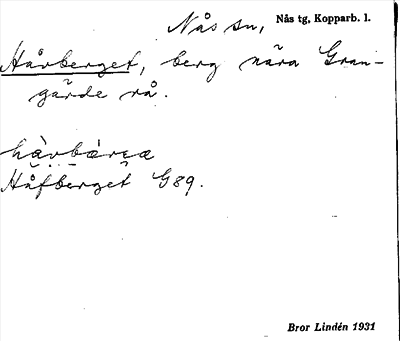 Nås sn, Nås tg, Kopparb. l.
Håvberget, berg nära Gran-
gärde rå.
håvbärɛa
Håfberget G89.
Bror Lindén 1931